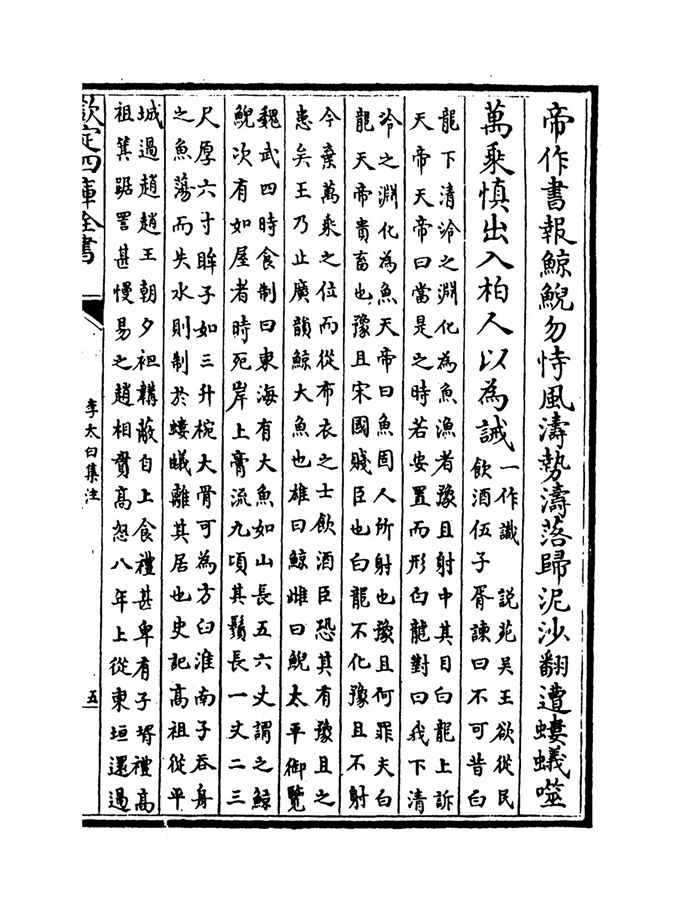 帝作書報鯨鯢勿恃風濤勢濤落歸泥沙翻遭螻蟻噬
萬乘慎出入柏人以為誡
一作識 說苑吳王欲從民
飲酒伍子胥諫曰不可昔白
龍下清泠之淵化為魚漁者豫且射中其目白龍上訴
天帝天帝曰當是之時若安置而形白龍對曰我下清
泠之淵化為魚天帝曰魚固人所射也豫且何罪夫白
龍天帝貴畜也豫且宋國賤臣也白龍不化豫且不射
今棄萬乘之位而從布衣之士飲酒臣恐其有豫且之
患矣王乃止廣韻鯨大魚也雄曰鯨雌曰鯢太平御覽
魏武四時食制曰東海有大魚如山長五六丈謂之鯨
鯢次有如屋者時死岸上膏流九頃其鬚長一丈二三
尺厚六寸眸子如三升椀大骨可為方臼淮南子吞舟
之魚蕩而失水則制於螻蟻離其居也史記高祖從平
城過趙趙王朝夕袒韝蔽自上食禮甚卑有子壻禮高
祖箕踞詈甚慢易之趙相貫高怒八年上從東垣還過
欽定四庫全書
李太白集注
五